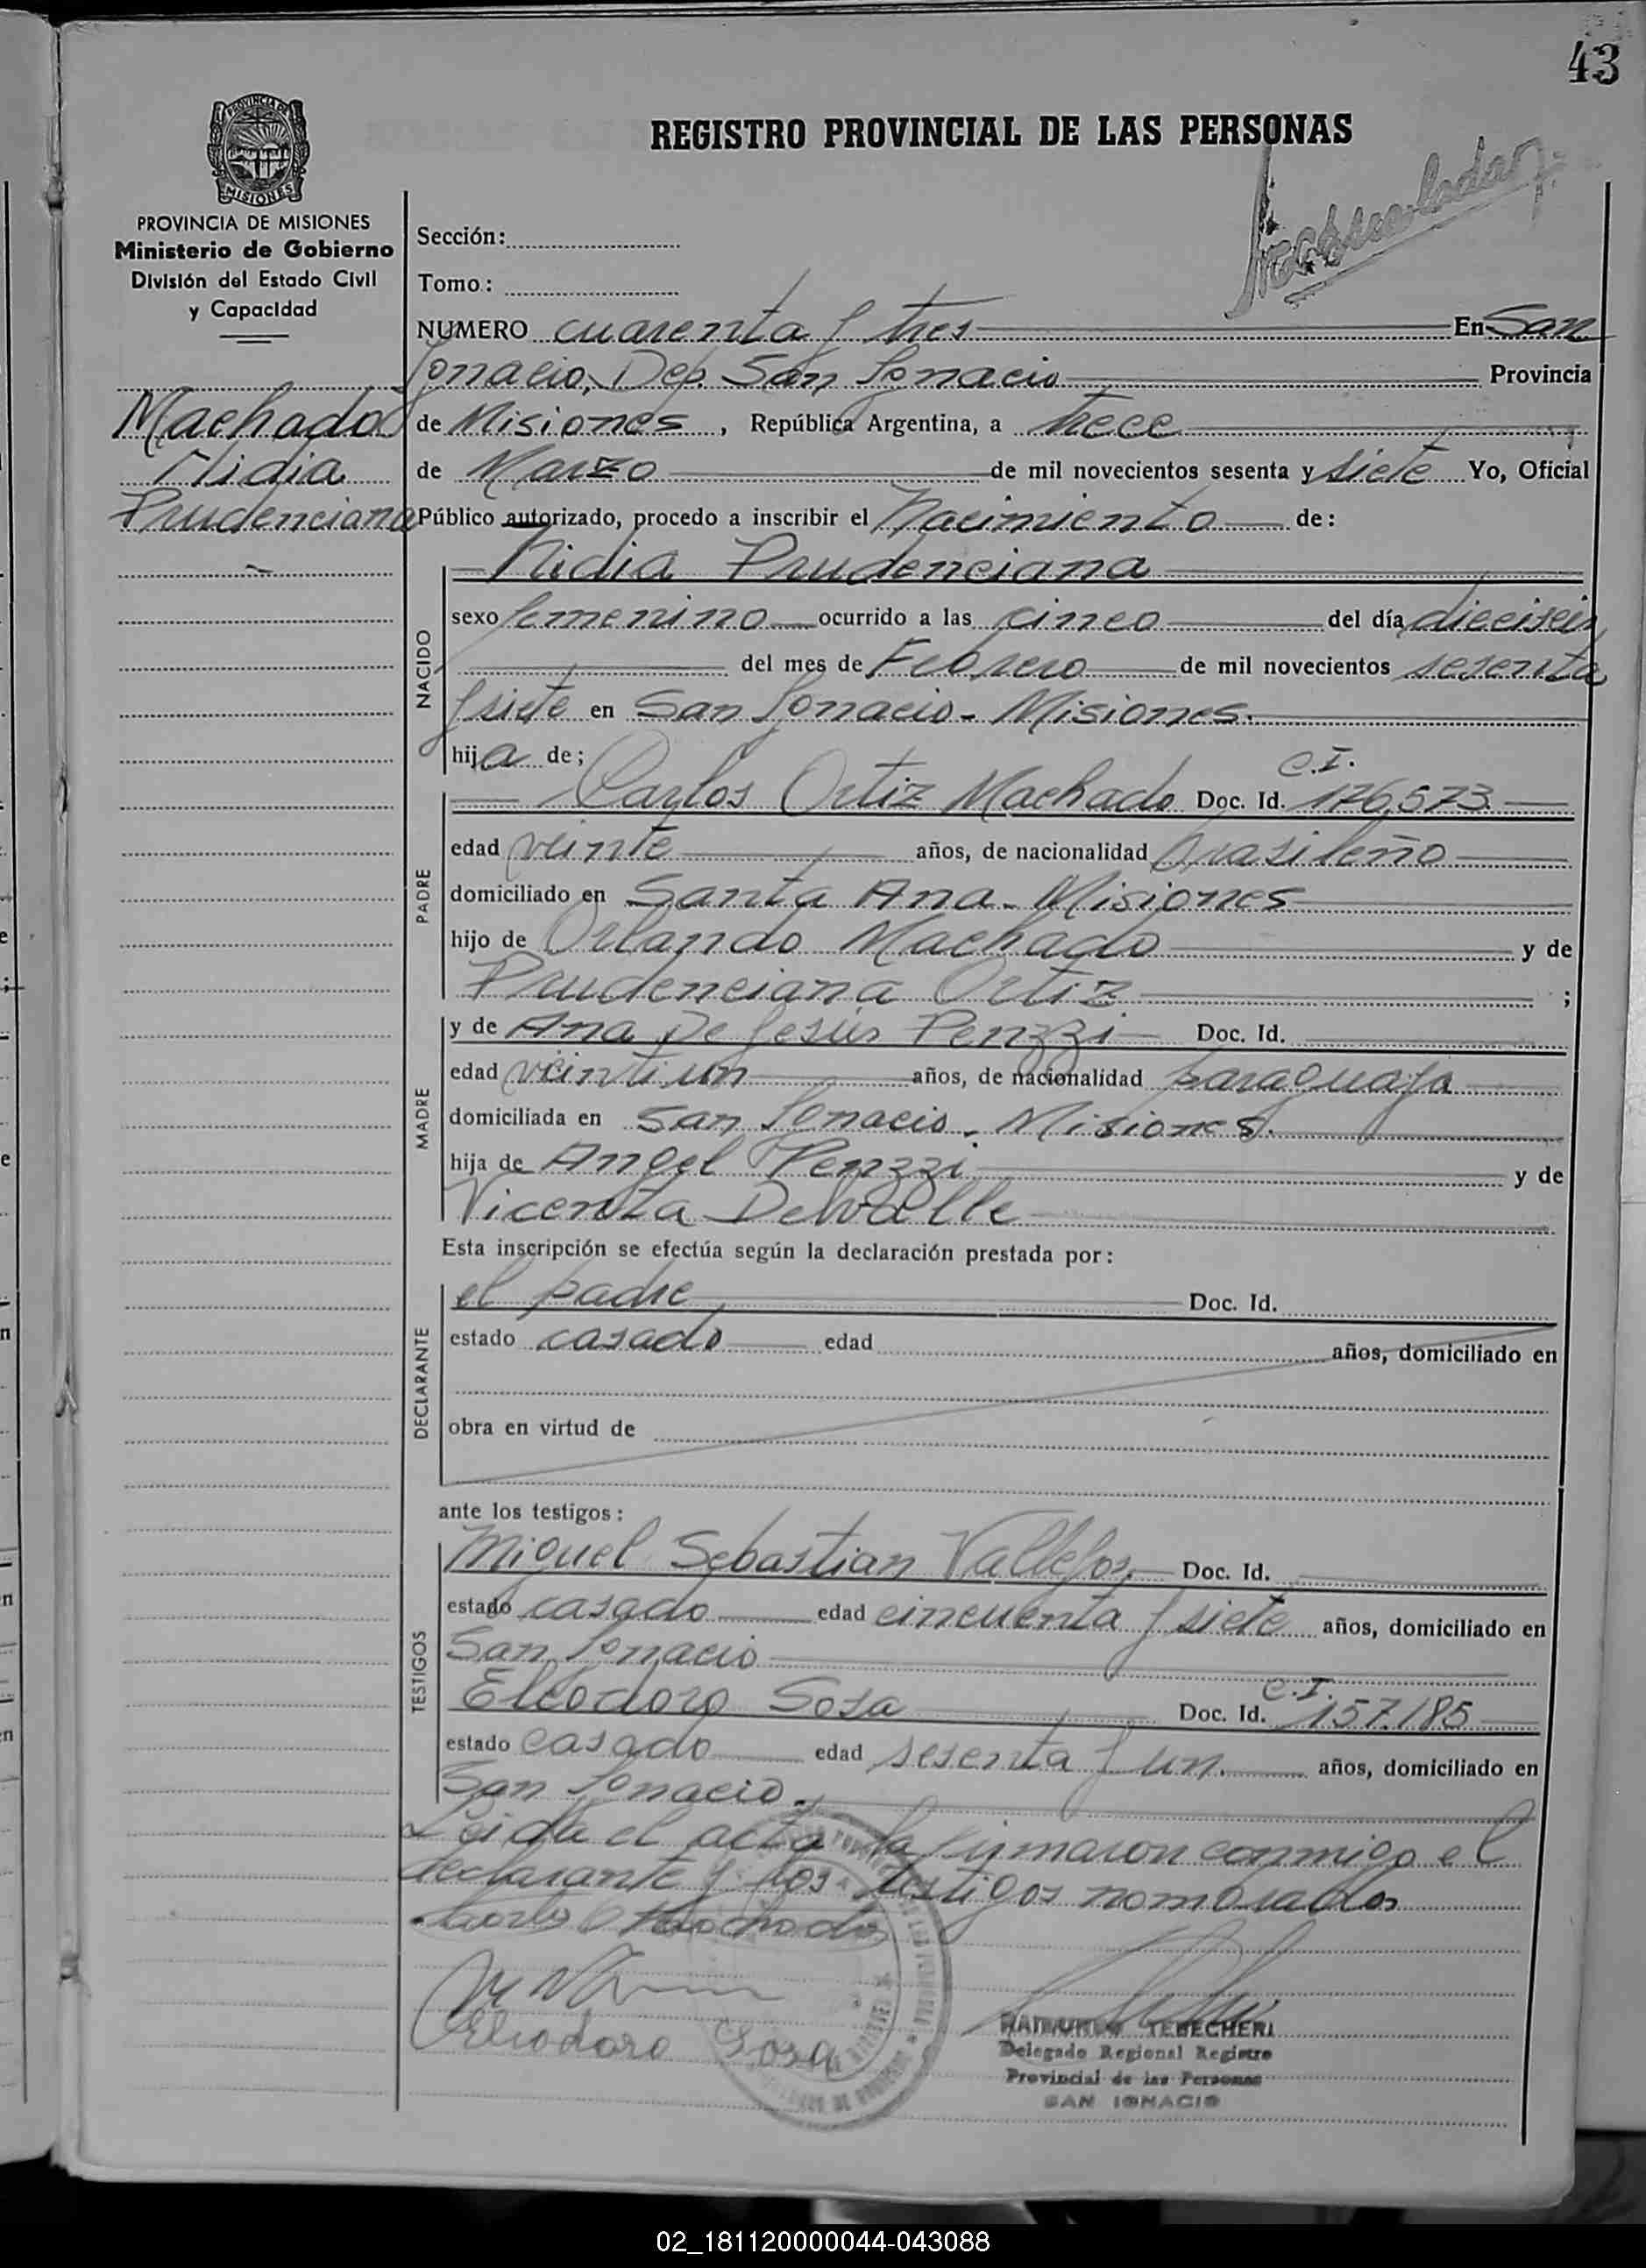 43
PROVINCIA DE
MISIONES
REGISTRO PROVINCIAL DE LAS PERSONAS
PROVINCIA DE MISIONES
Ministerio de Gobierno
División del Estado Civil
y Capacidad
Machado
Nidia
Prudenciana
Sección:
Tomo:
NUMERO cuarenta y tres En San
Ignacio, Dep. San Ignacio Provincia
de Misiones, República Argentina, a trece
de Marzo de mil novecientos sesenta y siete Yo, Oficial
Público autorizado, procedo a inscribir el Nacimiento de:
Nidia Prudenciana
NACIDO
sexo femenino ocurrido a las cinco del día dieciseis
del mes de Febrero de mil novecientos sesenta
y siete en San Ignacio - Misiones.
hija de;
C.I.
Carlos Ortiz Machado Doc. Id. 176.573
PADRE
edad veinte años, de nacionalidad brasileño
domiciliado en Santa Ana - Misiones
hijo de Orlando Machado y de
Prudenciana Ortiz ;
MADRE
y de Ana De Jesús Penzzi Doc. Id.
edad veintiun años, de nacionalidad paraguaya
domiciliada en San Ignacio - Misiones.
hija de Angel Penzzi y de
Vicenta Delvalle
Esta inscripción se efectúa según la declaración prestada por:
DECLARANTE
el padre Doc. Id.
estado casado edad años, domiciliado en
obra en virtud de
ante los testigos:
TESTIGOS
Miguel Sebastian Vallejos. Doc. Id.
estado casado edad cincuenta y siete años, domiciliado en
San Ignacio
C.I.
Eleodoro Sosa Doc. Id. 157.185
estado casado edad sesenta y un. años, domiciliado en
San Ignacio.
Leída el acta la firmaron conmigo el
declarante y los testigos nombrados
Carlos O Machado
Eliodoro Sosa
TEBECHERI
Delegado Regional Registro
Provincial de las Personas
SAN IGNACIO
02_181120000044-043088